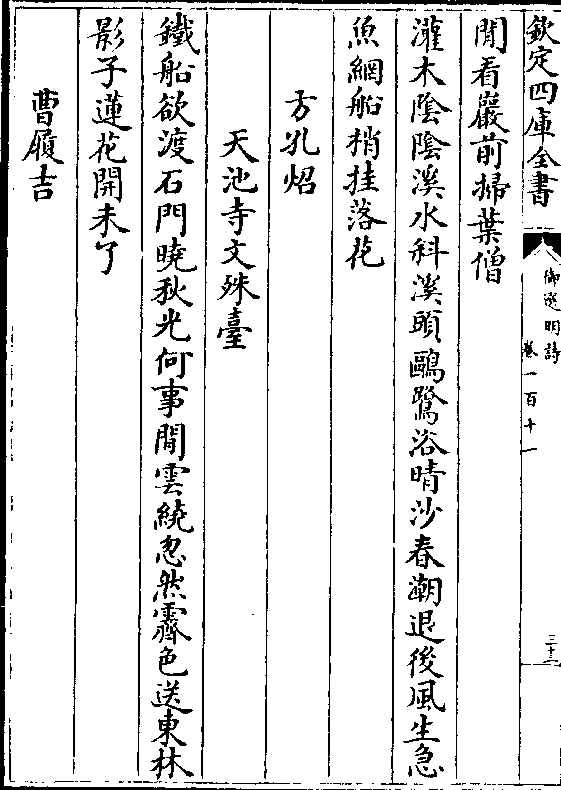 欽定四庫全書
御選明詩
卷一百十一
三十三
閒看巖前掃葉僧
灌木陰陰溪水斜溪頭鷗鷺浴晴沙春潮退後風生急
魚網船梢挂落花
方孔炤
天池寺文殊臺
鐵船欲渡石門曉秋光何事閒雲繞忽然霽色送東林
影子蓮花開未了
曹履吉